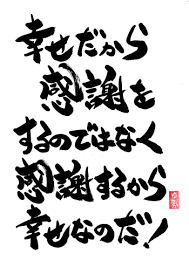 幸せだから
感謝を
するのではなく
感謝するから
幸せなのだ！